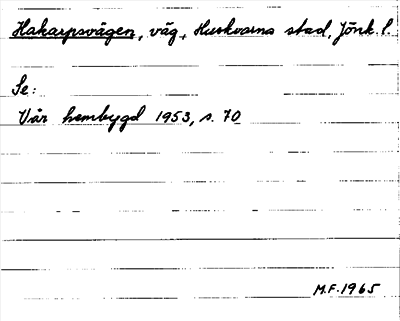 Hakarpsvägen, väg, Huskvarna stad, Jönk. l.
Se:
Vår hembygd 1953, s. 70
M.F. 1965